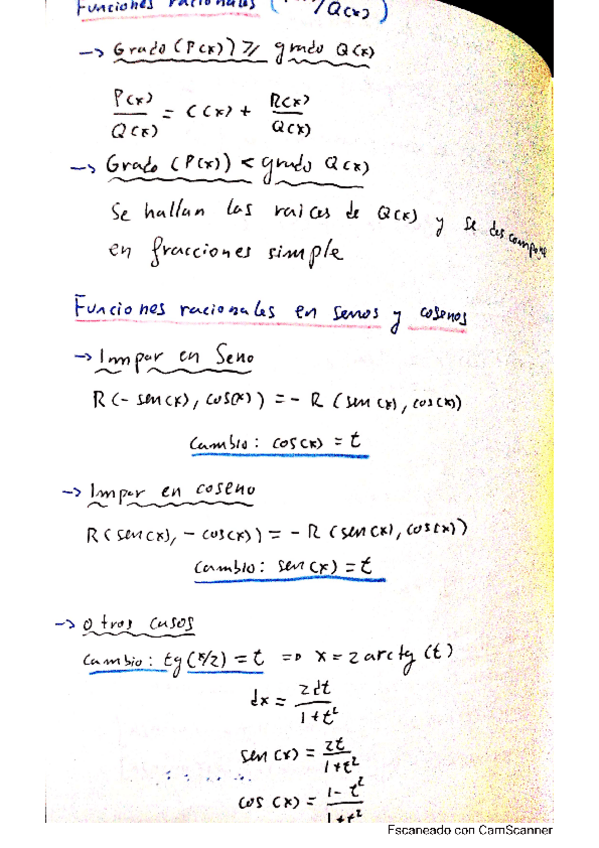 Funciones racionales (P(x)/Q(x))
→ Grado (P(x)) ≥ grado Q(x)
P(x)/Q(x) = C(x) + R(x)/Q(x)
→ Grado (P(x)) < grado Q(x)
Se hallan las raices de Q(x) y se descompone
en fracciones simple
Funciones racionales en senos y cosenos
→ Impar en Seno
R(- sen(x), cos(x)) = - R (sen(x), cos(x))
Cambio: cos(x) = t
→ Impar en coseno
R(sen(x), - cos(x)) = - R (sen(x), cos(x))
Cambio: sen(x) = t
→ otros casos
Cambio: tg(x/2) = t => x = 2 arctg (t)
dx = 2dt/1+t²
sen (x) = 2t/1+t²
cos (x) = 1-t²/1+t²
Escaneado con CamScanner